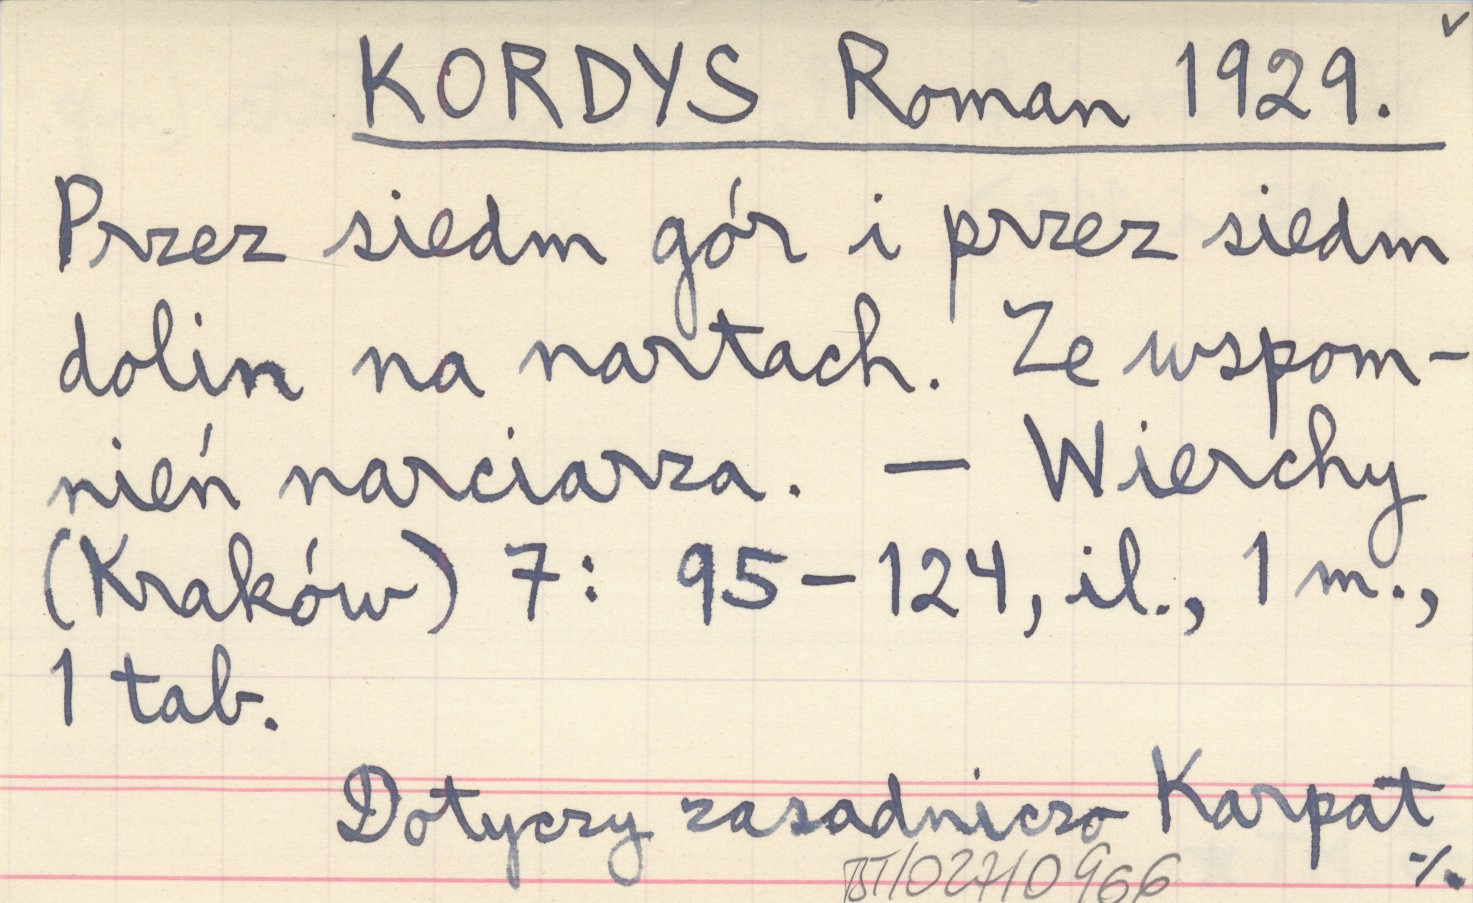 ✓
KORDYS Roman 1929.
Przez siedm gór i przez siedm
dolin na nartach. Ze wspom-
nień narciarza. — Wierchy
(Kraków) 7: 95-124, il., 1 m.,
1 tab.
Dotyczy zasadniczo Karpat
./.
BT/027/0966